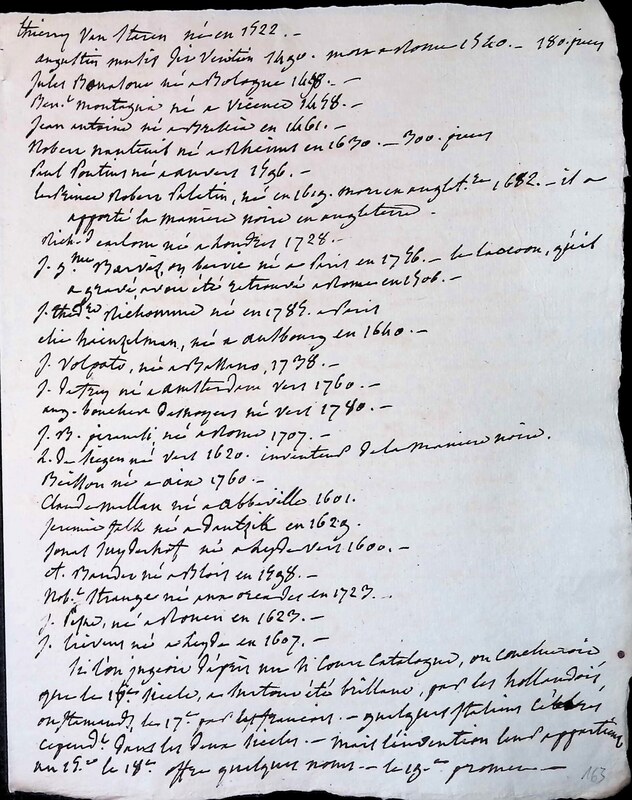 thierry Van Staren né en 1522. —
augustin mutis dit Venitien 1490. mort a Rome 1540. — 180. pieces
Jules Bonasone né a Bologne 1498. —
Ben.t Montagna né a Vicence 1458. —
Jean antoine né a Brescia en 1461. —
Robert nanteuil né a Rheims en 1630. — 300. pieces
Paul Pontius né a anvers 1596. —
le Prince Robert Palatin, né en 1619. mort en anglt.re 1682. — il a
apporté la maniere noire en angleterre.
Rich.d earlom né a Londres 1728. —
J. g.me né a Paris en 1756. — le laocoon, qu'il
a gravé avoit été retrouvé a Rome en 1506. —
J. théod.re Richomme né en 1785. a Paris
elie hainzelman, né a ausbourg en 1640. —
J. Volpato, né a Bassano, 1738. —
J. né a amsterdam vers 1760. —
aug. boucher Desnoyers né vers 1780. —
J. B. piranesi, né a Rome 1707. —
L. de Siegen né vers 1620. inventeur de la maniere noire.
Beisson né a aix 1760. —
Claude mellan né a abbeville 1601.
Jeremie falk né a Dantzik en 1629.
Jonas Suyderhof né a leyde vers 1600. —
A. Bosse né a Blois en 1598. —
Rob.t Strange né aux orcades en 1723.
J. Pesne, né a Rouen en 1623. —
J. Livens né a leyde en 1607. —
Si l'on jugeoit d'après un si court Catalogue, on concluroit
que le 16e siecle, a surtout été brillant, par les hollandois
ou flamands, les 17e par les francois. — quelques Italiens célèbres
cepend.t dans les deux siecles. — mais l'invention leur appartient
au 15.e le 18e offre quelques noms — le 19.e promet —
163